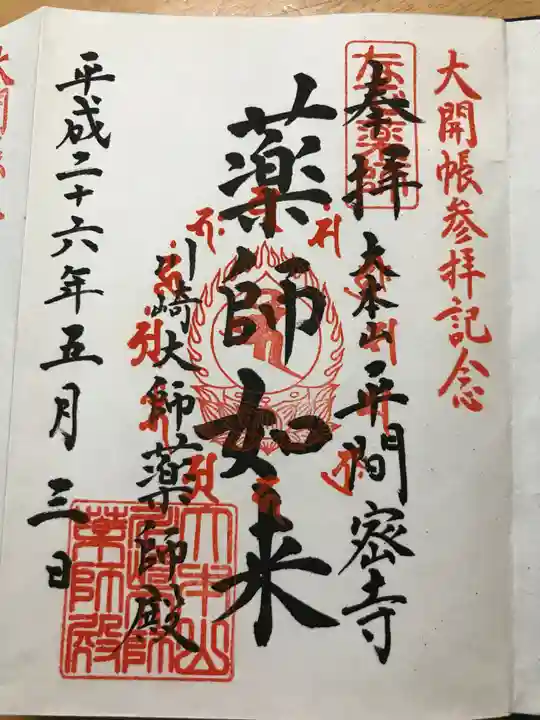 大開帳参拝記念
奉拝
大本山平間密寺
薬師如来
川崎大師薬師殿
平成二十六年五月三日
大本山
川崎大師
薬師殿